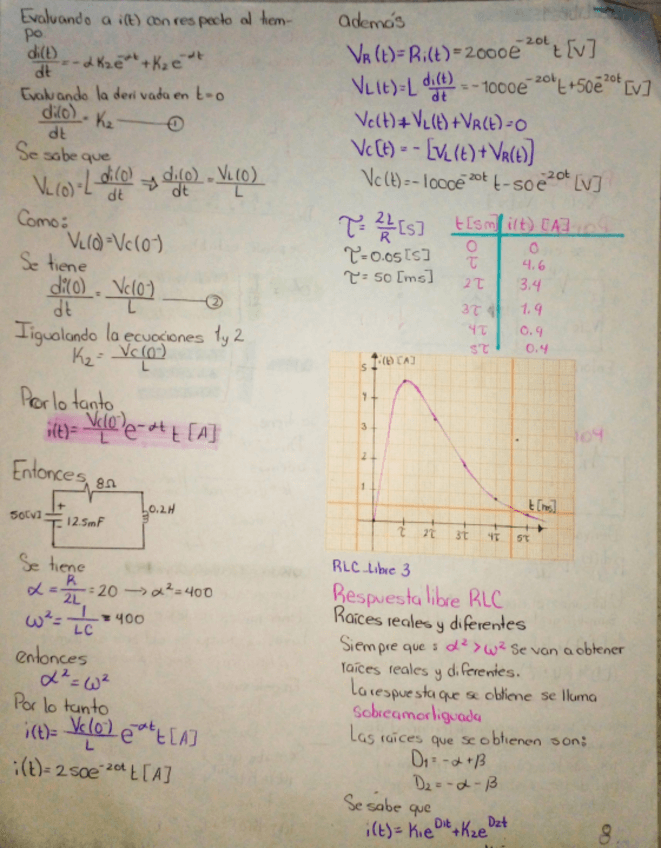 Evaluando a i(t) con respecto al tiem-
po
di(t)/dt = -αK₂e^-αt + K₂e^-αt
Evaluando la derivada en t=0
di(0)/dt = K₂ ——— ①
Se sabe que
V_L(0)=L di(0)/dt ⇒ di(0)/dt = V_L(0)/L
Como:
V_L(0)=Vc(0⁻)
Se tiene
di(0)/dt = Vc(0⁻)/L ——— ②
Iigualando la ecuaciones 1 y 2
K₂ = Vc(0⁻)/L
Por lo tanto
i(t)= Vc(0⁻)/L e^-αt t [A]
Entonces
8Ω
50[V] + - 12.5mF 0.2H
Se tiene
α = R/2L = 20 → α²=400
ω² = 1/LC = 400
entonces
α² = ω²
Por lo tanto
i(t)= Vc(0⁻)/L e^-αt t [A]
i(t)= 250e^-20t t [A]
además
V_R(t)=Ri(t)=2000e^-20t t [V]
V_L(t)=L di(t)/dt = -1000e^-20t t+50e^-20t [V]
Vc(t)+V_L(t)+V_R(t)=0
Vc(t)=-[V_L(t)+V_R(t)]
Vc(t)=-1000e^-20t t-50e^-20t [V]
τ = 2L/R [s]
τ=0.05[s]
τ= 50 [ms]
t[sm] i(t) [A]
0 0
τ 4.6
2τ 3.4
3τ 1.9
4τ 0.9
5τ 0.4
i(t) [A]
5
4
3
2
1
t[ms]
τ 2τ 3τ 4τ 5τ
RLC_Libre 3
Respuesta libre RLC
Raíces reales y diferentes
Siempre que: α²>ω² se van a obtener
raíces reales y diferentes.
La respuesta que se obtiene se llama
sobreamortiguada
Las raíces que se obtienen son:
D₁=-α+β
D₂=-α-β
Se sabe que
i(t)= K₁e^D₁t+K₂e^D₂t
8